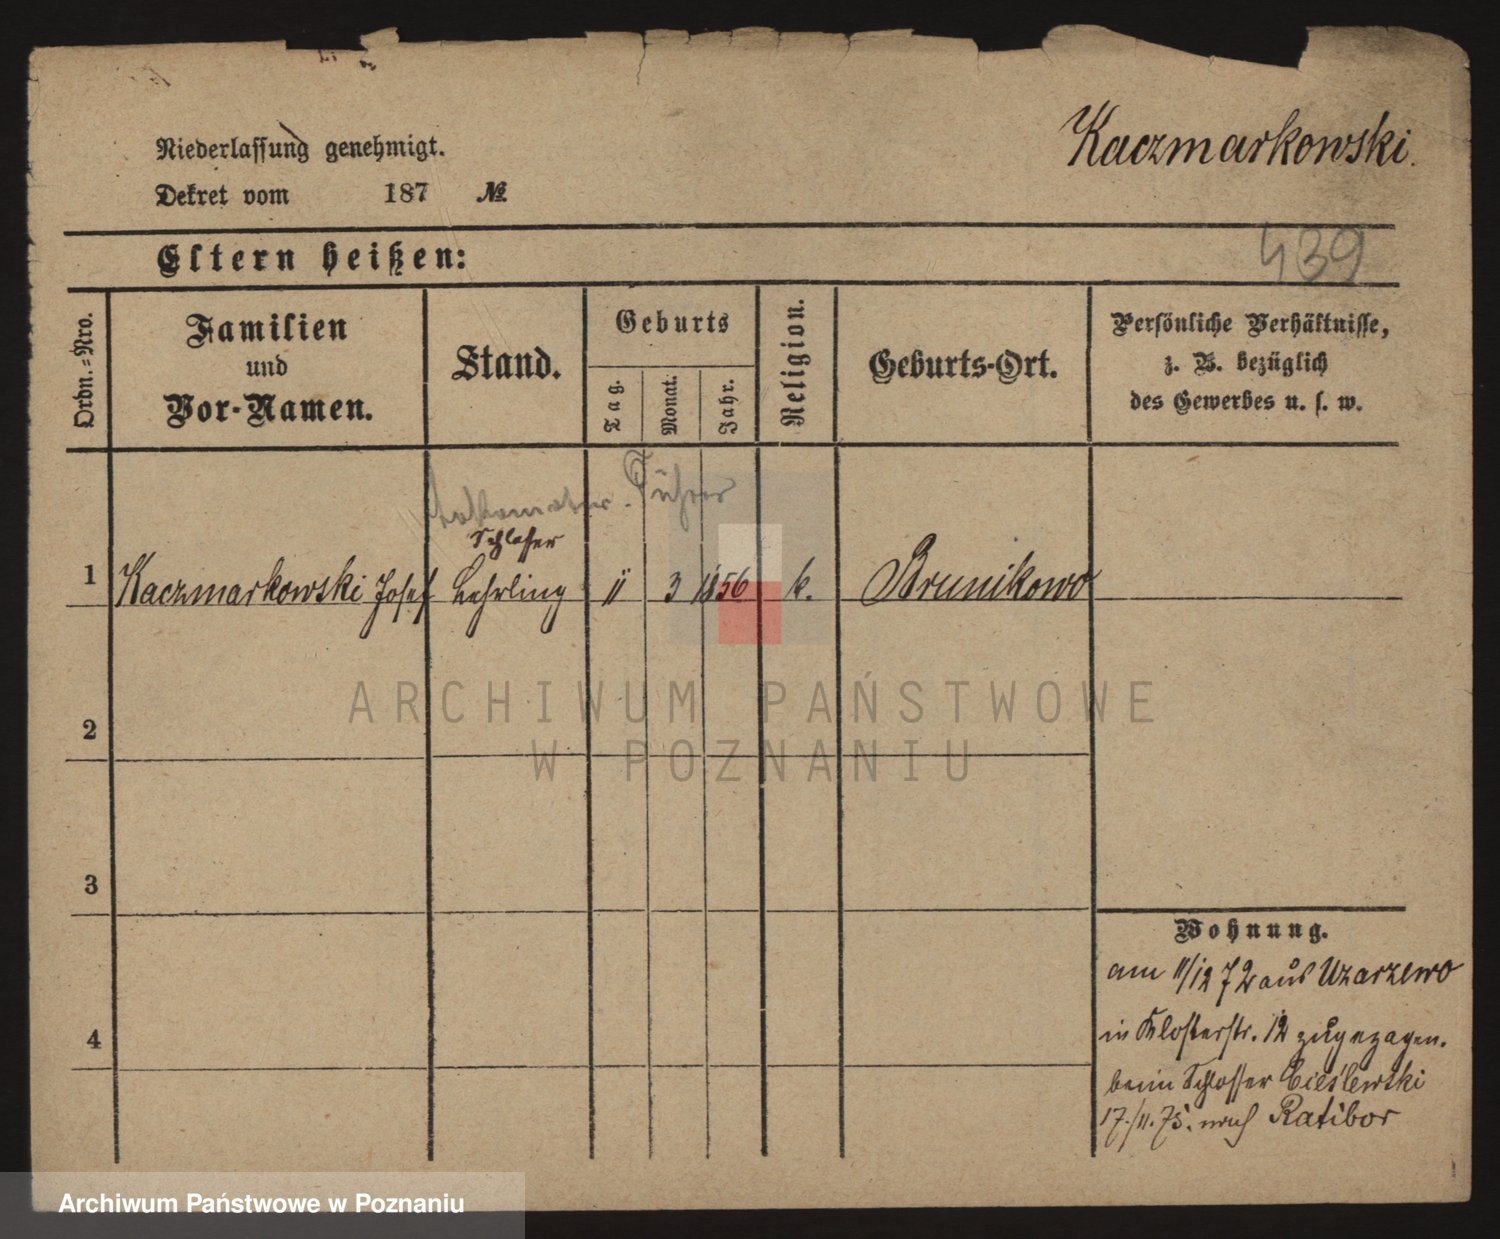 Niederlassung genehmigt.
Dekret vom 187 №
Kaczmarkowski.
439
Eltern heißen:
Ordn.=Nro.
Familien
und
Vor-Namen.
Stand.
Geburts
Tag.
Monat.
Jahr.
Religion.
Geburts-Ort.
Persönliche Verhältnisse,
z. B. bezüglich
des Gewerbes u. s. w.
Lokomotiv-Führer
Schlosser
1 Kaczmarkowski Josef Lehrling 11 3 1856 k. Brunikowo
2
3
4
Wohnung.
am 11/12 72 aus Uzarzewo
in Klosterstr. 12 zugezogen.
beim Schlosser Cieślewski
17./11. 75. nach Ratibor
ARCHIWUM PAŃSTWOWE
W POZNANIU
Archiwum Państwowe w Poznaniu